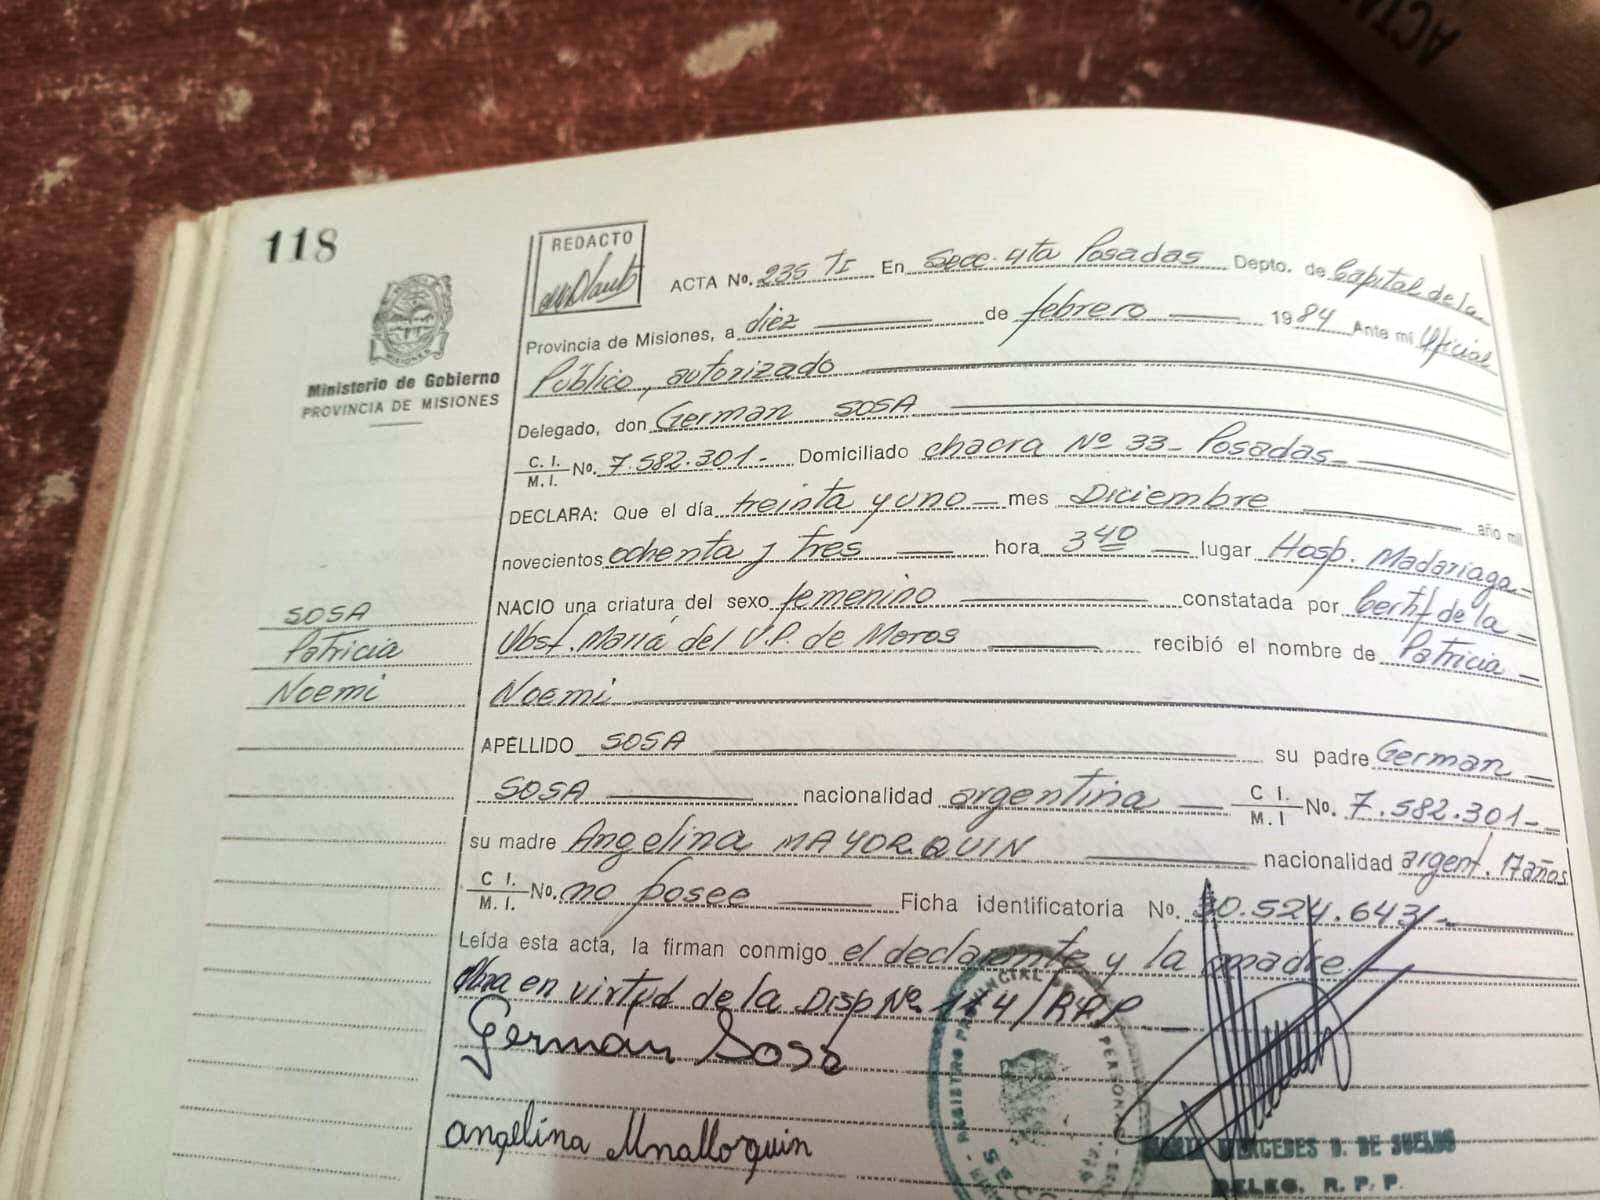 ACTA
118
REDACTO
ACTA No. 235 TI En Secc. 4ta Posadas Depto. de Capital de la
Provincia de Misiones, a diez de febrero 1984 Ante mi Oficial
Público, autorizado
Ministerio de Gobierno
PROVINCIA DE MISIONES
Delegado, don German SOSA
C. I.
M. I. No. 7.582.301.- Domiciliado chacra Nº 33 - Posadas -
DECLARA: Que el día treinta y uno - mes Diciembre año mil
novecientos ochenta y tres hora 3 40 lugar Hosp. Madariaga -
NACIO una criatura del sexo femenino constatada por Certif de la
Obst. María del V.P. de Meros recibió el nombre de Patricia
Noemi
SOSA
Patricia
Noemi
APELLIDO SOSA su padre German
SOSA nacionalidad argentina C I.
M. I No. 7.582.301-
su madre Angelina MAYOR.QUIN nacionalidad argent. 17 años
C I.
M. I. No. no posee Ficha identificatoria No. 30.524.643/-
Leída esta acta, la firman conmigo el declarante y la madre
en virtud de la Disp Nº 174/RPP
Germán Sosa
angelina Mnallorquin
REGISTRO PROVINCIAL DE PERSONAS
MERCEDES D. DE SUELDO
DELEG. R. P. P.